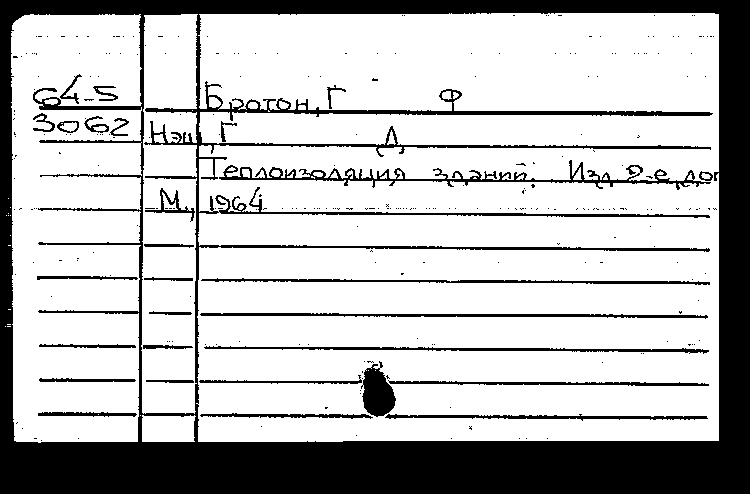 64-5 Бротон, Г Ф
3062 Нэш, Г Д.
Теплоизоляция зданий. Изд 2-е, доп
М., 1964